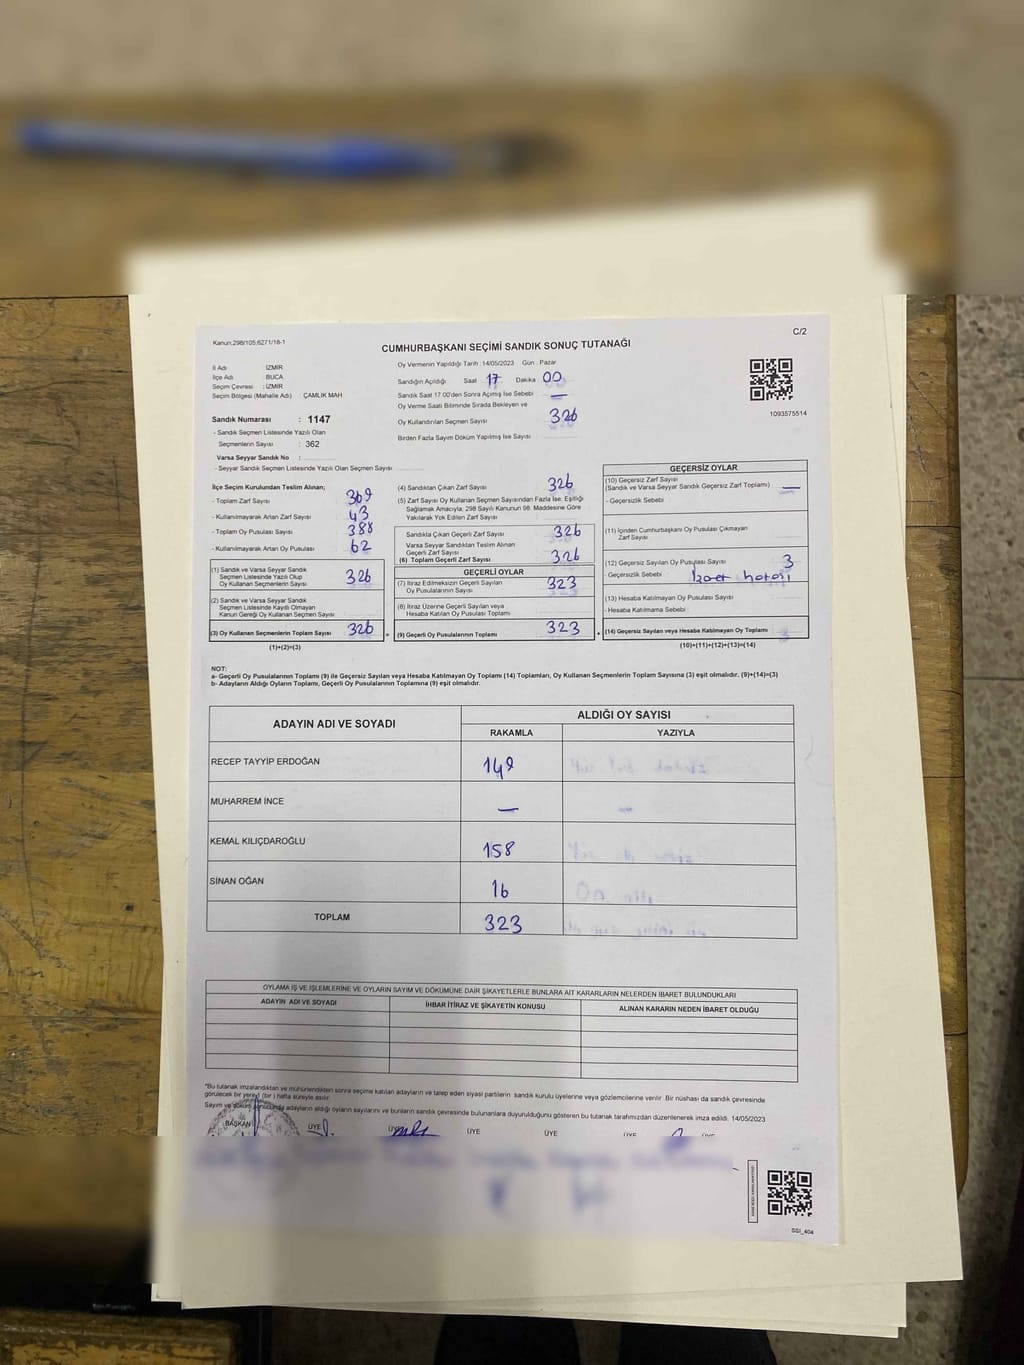 Kanun:298/105,6271/18-1
C/2
CUMHURBAŞKANI SEÇİMİ SANDIK SONUÇ TUTANAĞI
İl Adı : İZMİR
İlçe Adı : BUCA
Seçim Çevresi : İZMİR
Seçim Bölgesi (Mahalle Adı) : ÇAMLIK MAH
Sandık Numarası : 1147
- Sandık Seçmen Listesinde Yazılı Olan
Seçmenlerin Sayısı : 362
Varsa Seyyar Sandık No :
- Seyyar Sandık Seçmen Listesinde Yazılı Olan Seçmen Sayısı
Oy Vermenin Yapıldığı Tarih : 14/05/2023 Gün : Pazar
Sandığın Açıldığı Saat 17 Dakika 00
Sandık Saat 17:00'den Sonra Açılmış İse Sebebi —
Oy Verme Saati Bitiminde Sırada Bekleyen ve
Oy Kullandırılan Seçmen Sayısı 326
Birden Fazla Sayım Döküm Yapılmış İse Sayısı
1093575514
İlçe Seçim Kurulundan Teslim Alınan;
- Toplam Zarf Sayısı 369
- Kullanılmayarak Artan Zarf Sayısı 43
- Toplam Oy Pusulası Sayısı 388
- Kullanılmayarak Artan Oy Pusulası 62
(1) Sandık ve Varsa Seyyar Sandık
Seçmen Listesinde Yazılı Olup
Oy Kullanan Seçmenlerin Sayısı 326
(2) Sandık ve Varsa Seyyar Sandık
Seçmen Listesinde Kayıtlı Olmayan
Kanun Gereği Oy Kullanan Seçmen Sayısı
(3) Oy Kullanan Seçmenlerin Toplam Sayısı 326
(1)+(2)=(3)
(4) Sandıktan Çıkan Zarf Sayısı 326
(5) Zarf Sayısı Oy Kullanan Seçmen Sayısından Fazla İse, Eşitliği
Sağlamak Amacıyla, 298 Sayılı Kanunun 98. Maddesine Göre
Yakılarak Yok Edilen Zarf Sayısı
Sandıkta Çıkan Geçerli Zarf Sayısı 326
Varsa Seyyar Sandıktan Teslim Alınan
Geçerli Zarf Sayısı
(6) Toplam Geçerli Zarf Sayısı 326
GEÇERLİ OYLAR
(7) İtiraz Edilmeksizin Geçerli Sayılan
Oy Pusulalarının Sayısı 323
(8) İtiraz Üzerine Geçerli Sayılan veya
Hesaba Katılan Oy Pusulası Toplamı
(9) Geçerli Oy Pusulalarının Toplamı 323
GEÇERSİZ OYLAR
(10) Geçersiz Zarf Sayısı
(Sandık ve Varsa Seyyar Sandık Geçersiz Zarf Toplamı) —
- Geçersizlik Sebebi
(11) İçinden Cumhurbaşkanı Oy Pusulası Çıkmayan
Zarf Sayısı
(12) Geçersiz Sayılan Oy Pusulası Sayısı 3
- Geçersizlik Sebebi
(13) Hesaba Katılmayan Oy Pusulası Sayısı
- Hesaba Katılmama Sebebi
(14) Geçersiz Sayılan veya Hesaba Katılmayan Oy Toplamı 3
(10)+(11)+(12)+(13)=(14)
NOT:
a- Geçerli Oy Pusulalarının Toplamı (9) ile Geçersiz Sayılan veya Hesaba Katılmayan Oy Toplamı (14) Toplamları, Oy Kullanan Seçmenlerin Toplam Sayısına (3) eşit olmalıdır. (9)+(14)=(3)
b- Adayların Aldığı Oyların Toplamı, Geçerli Oy Pusulalarının Toplamına (9) eşit olmalıdır.
ADAYIN ADI VE SOYADI ALDIĞI OY SAYISI
RAKAMLA YAZIYLA
RECEP TAYYİP ERDOĞAN 149
MUHARREM İNCE —
KEMAL KILIÇDAROĞLU 158
SİNAN OĞAN 16
TOPLAM 323
OYLAMA İŞ VE İŞLEMLERİNE VE OYLARIN SAYIM VE DÖKÜMÜNE DAİR ŞİKAYETLERLE BUNLARA AİT KARARLARIN NELERDEN İBARET BULUNDUKLARI
ADAYIN ADI VE SOYADI İHBAR İTİRAZ VE ŞİKAYETİN KONUSU ALINAN KARARIN NEDEN İBARET OLDUĞU
"Bu tutanak imzalandıktan ve mühürlendikten sonra seçime katılan adayların ve talep eden siyasi partilerin sandık kurulu üyelerine veya gözlemcilerine verilir. Bir nüshası da sandık çevresinde
görülecek bir yere 1 (bir) hafta süreyle asılır.
Sayım ve döküm sonucunda adayların aldığı oyların sayılarını ve bunların sandık çevresinde bulunanlara duyurulduğunu gösteren bu tutanak tarafımızdan düzenlenerek imza edildi. 14/05/2023
BAŞKAN ÜYE ÜYE ÜYE ÜYE ÜYE ÜYE
SSI_404